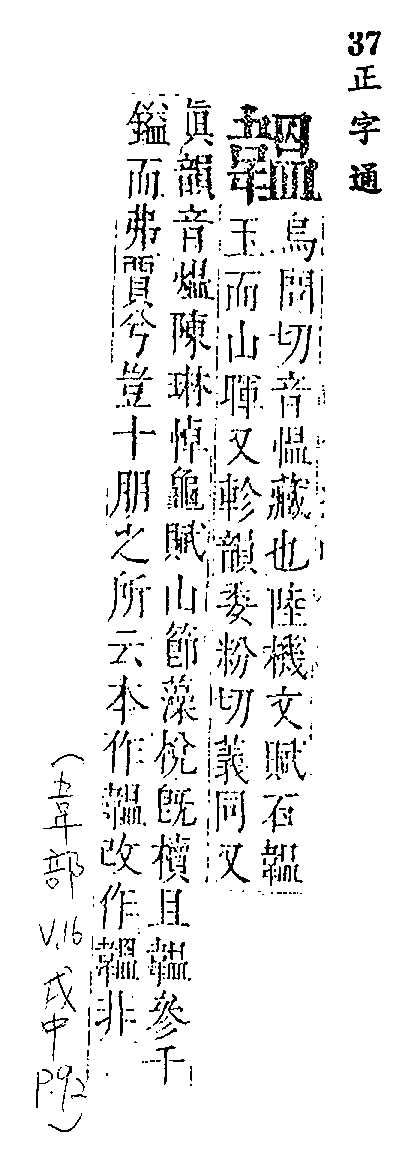 37正字通
韞烏問切音慍藏也陸機文賦石韞
玉而山暉又軫韻委粉切義同又
眞韻音熅陳琳悼龜賦山節藻梲旣櫝且韞參千
鎰而弗賈兮豈十朋之所云本作韞改作韞非
(韋部 V.16 戌中 P.92)